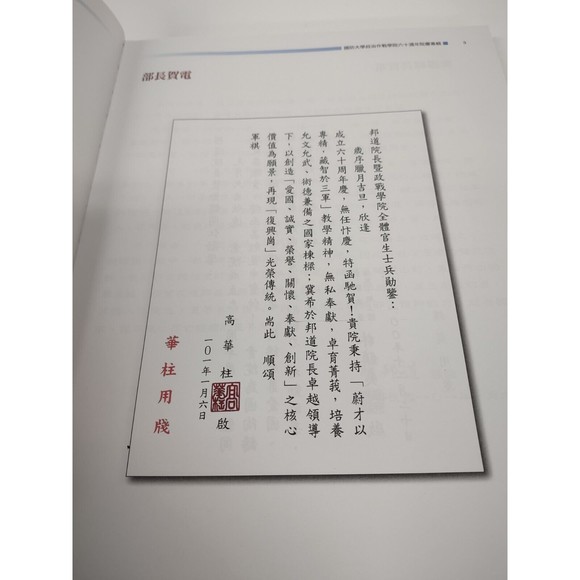 國防大學政治作戰學院六十週年院慶專輯
部長賀電
邦道院長暨政戰學院全體官生士兵勛鑒：
歲序臘月吉旦，欣逢
成立六十周年慶，無任忭慶，特函馳賀！貴院秉持「蔚才以
專精，藏智於三軍」教學精神，無私奉獻，卓育菁莪，培養
允文允武、術德兼備之國家棟樑；冀希於邦道院長卓越領導
下，以創造「愛國、誠實、榮譽、關懷、奉獻、創新」之核心
價值為願景，再現「復興崗」光榮傳統。耑此　順頌
軍祺
高華柱　啟
一０一年一月六日
華柱用牋